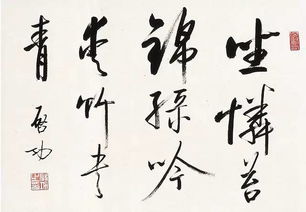 坐憐苔
錦綠吟
愛竹書
青
啓功